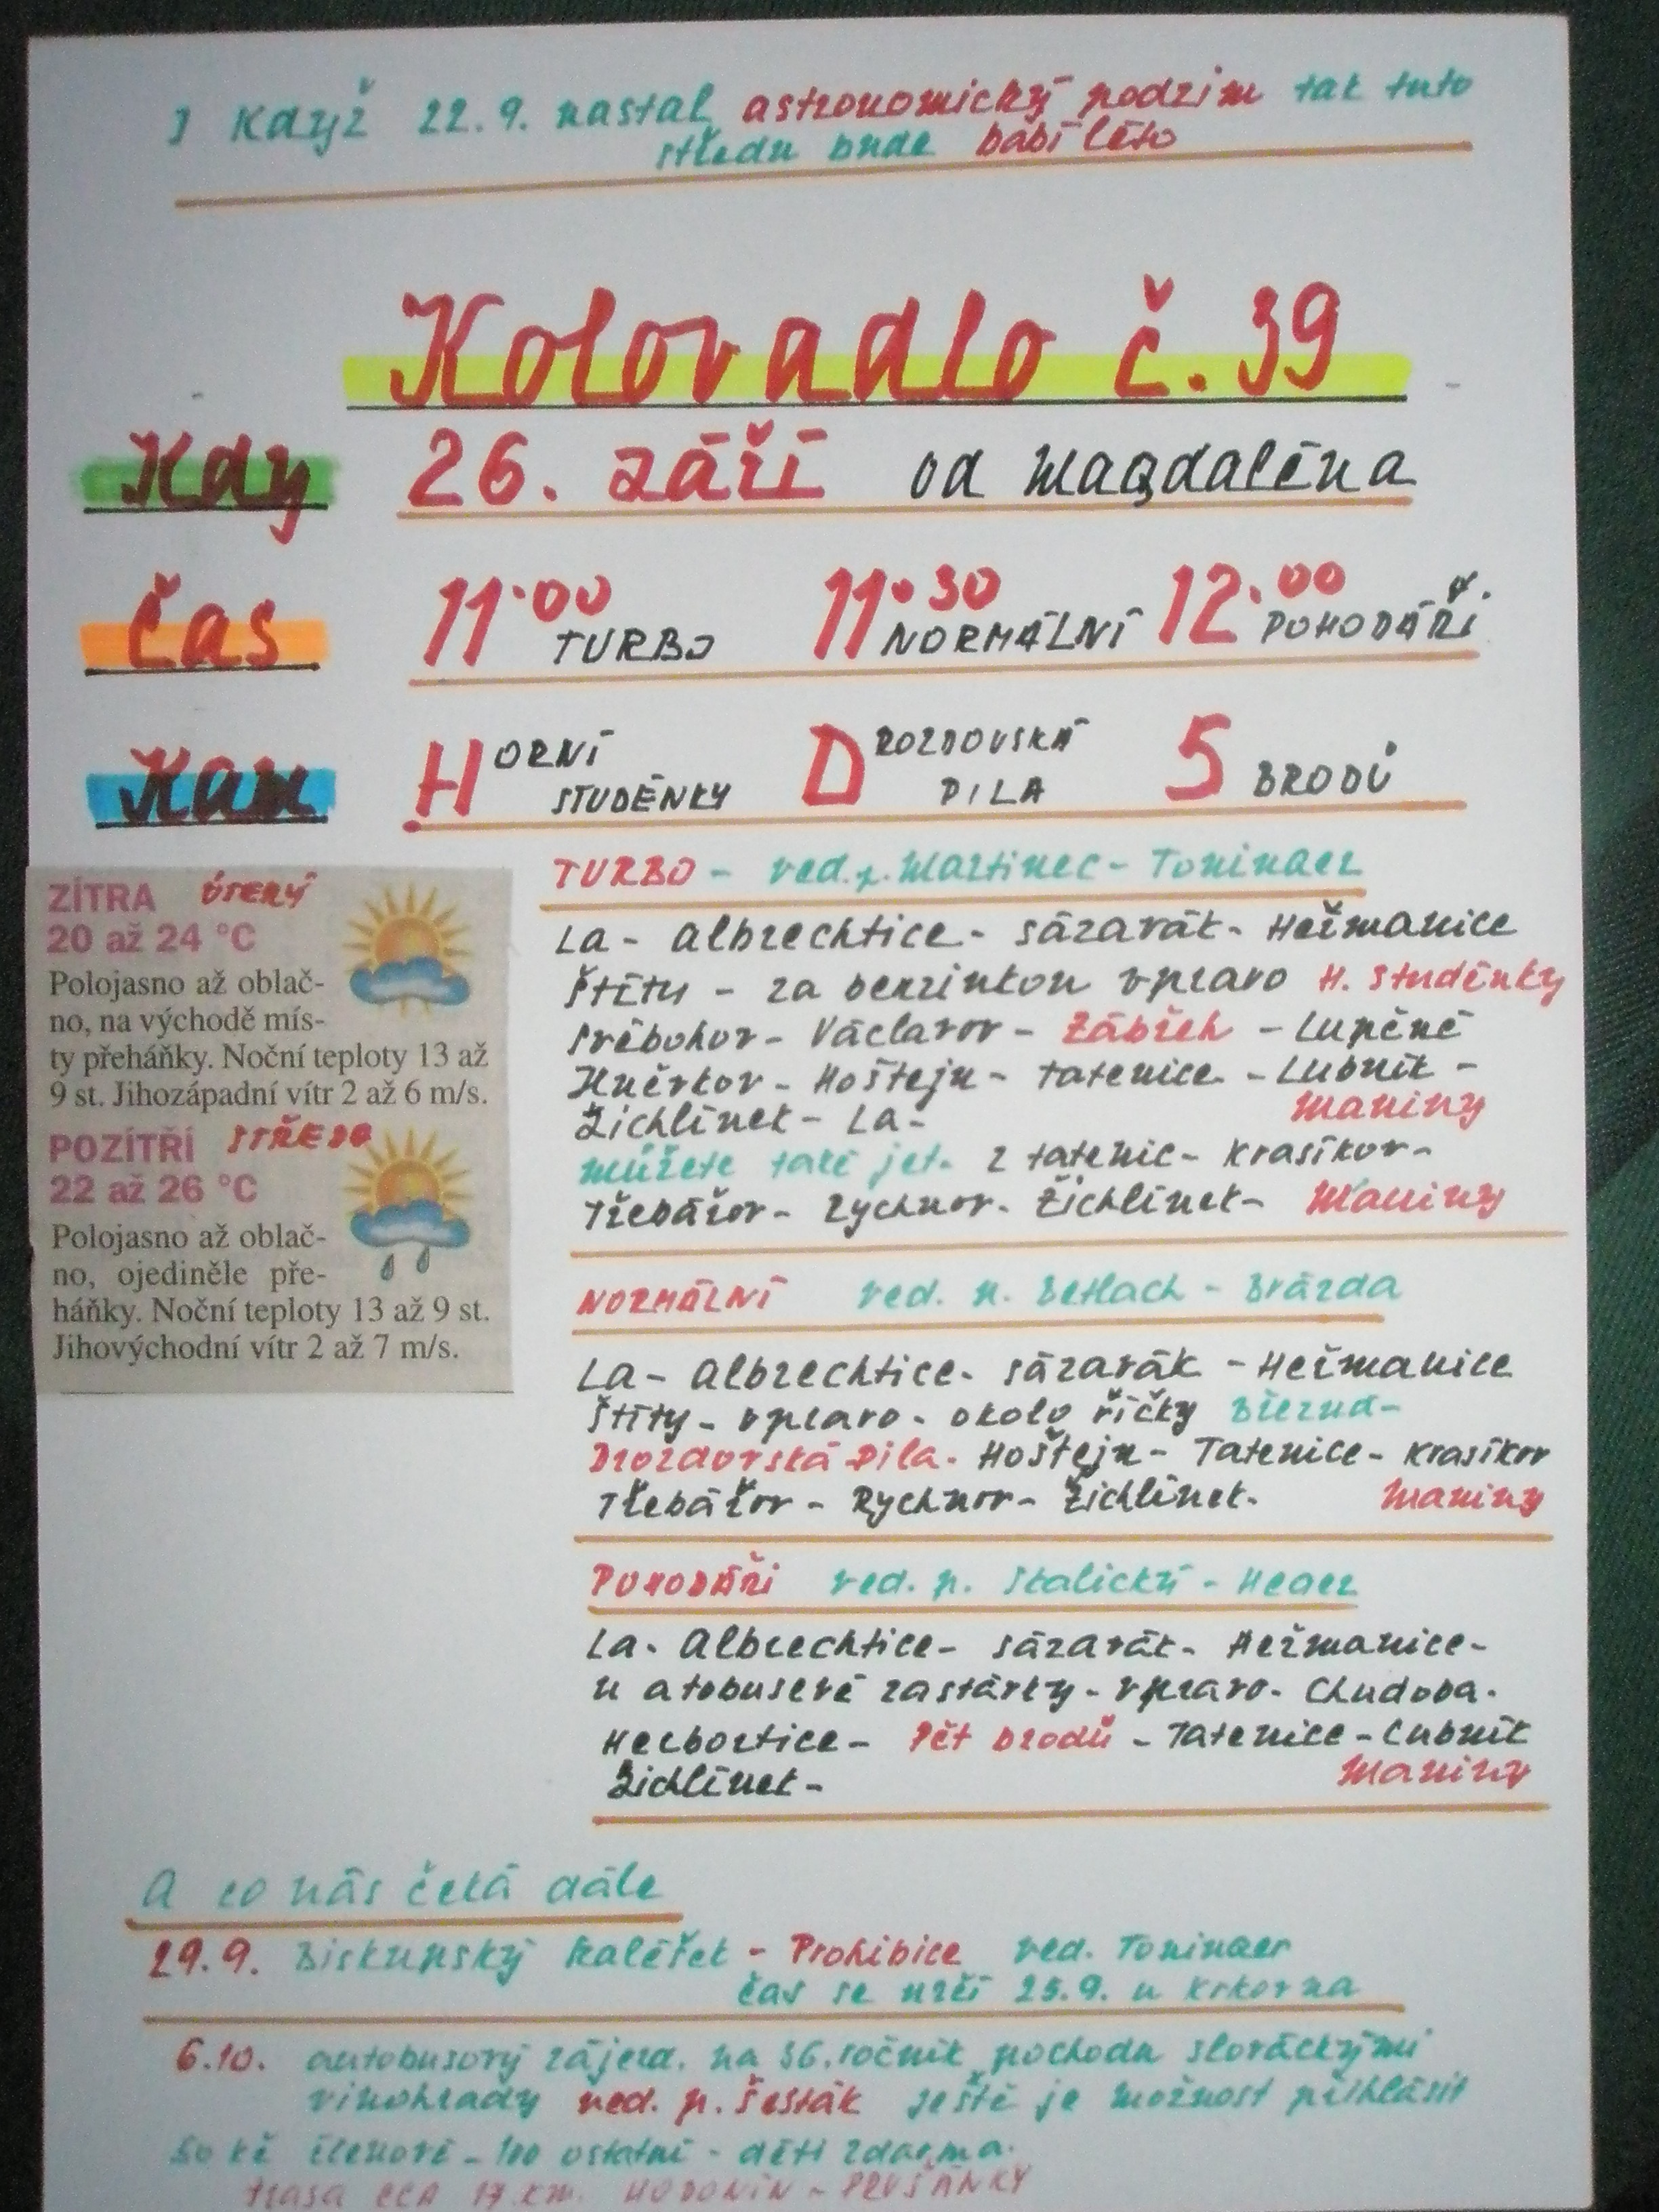 I Když 22.9. nastal astronomický podzim tak tuto
středu bude babí léto
Kolovadlo č. 39
Kdy 26. září od Magdaléna
Čas 11.00 TURBO 11.30 NORMÁLNÍ 12.00 POHODÁŘI
Kam HORNÍ STUDÉNKY DROZDOVSKÁ PILA 5 BRODŮ
TURBO - ved.p. Martinec - Toninger
La - Albrechtice - Sázavák - Heřmanice
Štíty - za benzinkou vpravo H. Studénky
Svébohov - Václavov - Zábřeh - Lupěné
Hněvkov - Hoštejn - Tatenice - Lubník -
Žichlínek - La - Maniny
můžete také jet. z Tatenic - Krasíkov -
Třebářov - Rychnov - Žichlínek - Maniny
ZÍTRA ÚTERÝ
20 až 24 °C
Polojasno až oblač-
no, na východě mís-
ty přeháňky. Noční teploty 13 až
9 st. Jihozápadní vítr 2 až 6 m/s.
POZÍTŘÍ STŘEDA
22 až 26 °C
Polojasno až oblač-
no, ojediněle pře-
háňky. Noční teploty 13 až 9 st.
Jihovýchodní vítr 2 až 7 m/s.
NORMÁLNÍ ved. p. Betlach - Brázda
La - Albrechtice - Sázavák - Heřmanice
Štíty - vpravo - okolo říčky Březná -
Drozdovská Pila - Hoštejn - Tatenice - Krasíkov
Třebářov - Rychnov - Žichlínek - Maniny
POHODÁŘI ved. p. Skalický - Heger
La - Albrechtice - Sázavák - Heřmanice -
u atobusové zastávky - vpravo - Chudoba -
Herbortice - Pět brodů - Tatenice - Lubník
Žichlínek - Maniny
A co nás čeká dále
29.9. Biskupský kaléšek - Prohibice ved. Toninger
čas se určí 25.9. u Krkovna
6.10. autobusový zájezd na 36. ročník pochodu slováckými
vinohrady ved. p. Šesták ještě je možnost přihlásit
50 kč členové - 100 ostatní - děti zdarma.
trasa CCA 17 km. HODONÍN - PRUŠÁNKY